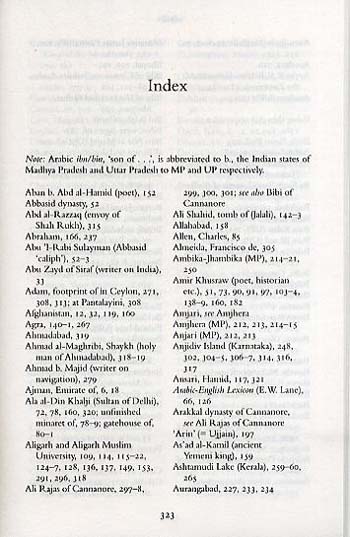 Index
Note: Arabic ibn/bin, 'son of . . .', is abbreviated to b., the Indian states of
Madhya Pradesh and Uttar Pradesh to MP and UP respectively.
Aban b. Abd al-Hamid (poet), 152
Abbasid dynasty, 52
Abd al-Razzaq (envoy of
Shah Rukh), 315
Abraham, 166, 237
Abu 'l-Rabi Sulayman (Abbasid
'caliph'), 52–3
Abu Zayd of Siraf (writer on India),
33
Adam, footprint of in Ceylon, 271,
308, 313; at Pantalayini, 308
Afghanistan, 12, 32, 119, 160
Agra, 140–1, 267
Ahmadabad, 319
Ahmad al-Maghribi, Shaykh (holy
man of Ahmadabad), 318–19
Ahmad b. Majid (writer on
navigation), 279
Ajman, Emirate of, 6, 18
Ala al-Din Khalji (Sultan of Delhi),
72, 78, 160, 320; unfinished
minaret of, 78–9; gatehouse of,
80–1
Aligarh and Aligarh Muslim
University, 109, 114, 115–22,
124–7, 128, 136, 137, 149, 153,
291, 296, 318
Ali Rajas of Cannanore, 297–8,
299, 300, 301; see also Bibi of
Cannanore
Ali Shahid, tomb of (Jalali), 142–3
Allahabad, 158
Allen, Charles, 85
Almeida, Francisco de, 305
Ambika-Jhambika (MP), 214–21,
250
Amir Khusraw (poet, historian
etc.), 51, 73, 90, 91, 97, 103–4,
138–9, 160, 182
Amjari, see Amjhera
Amjhera (MP), 212, 213, 214–15
Anjari (MP), 212, 213
Anjidiv Island (Karnataka), 248,
302, 304–5, 306–7, 314, 316,
317
Ansari, Hamid, 117, 321
Arabic-English Lexicon (E.W. Lane),
66, 126
Arakkal dynasty of Cannanore,
see Ali Rajas of Cannanore
'Arin' (= Ujjain), 197
As'ad al-Kamil (ancient
Yemeni king), 159
Ashtamudi Lake (Kerala), 259–60,
265
Aurangabad, 227, 233, 234
323